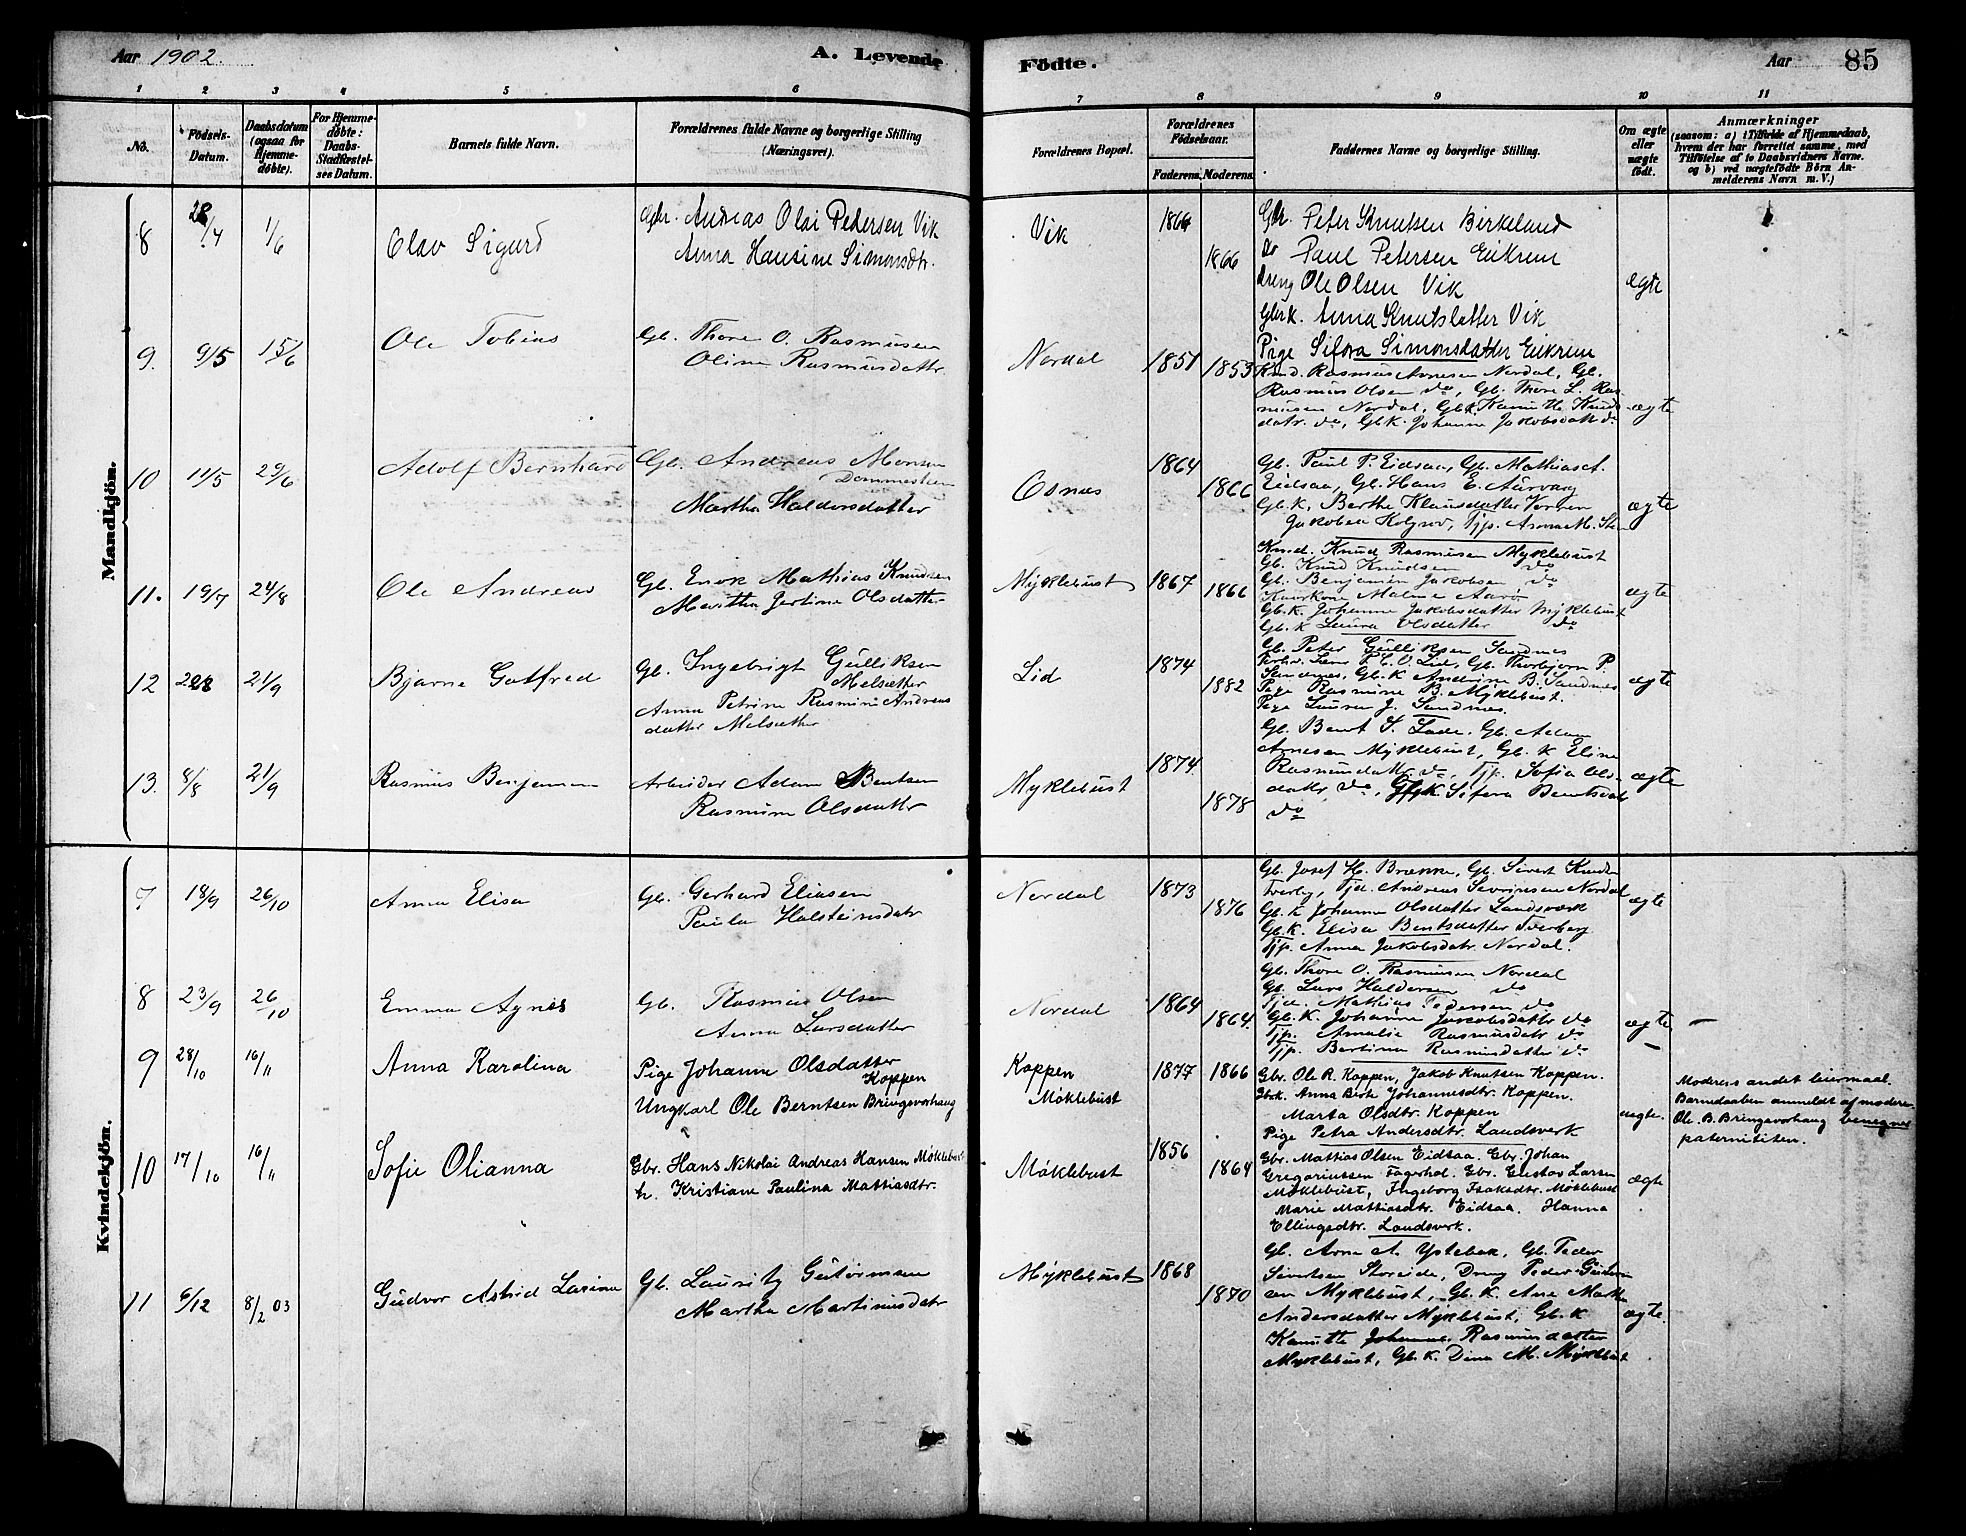 Aar 1902. A. Levende Födte. Aar 85
1 2 3 4 5 6 7 8 9 10 11
No.
Födsels-Datum.
Daabsdatum (ogsaa for Hjemmedöbte).
For Hjemmedöbte: Daabs-Stadfæstelses Datum.
Barnets fulde Navn.
Forældrenes fulde Navne og borgerlige Stilling (Næringsvei).
Forældrenes Bopæl.
Forældrenes Födselsaar.
Faderens. Moderens.
Faddernes Navne og borgerlige Stilling.
Om ægte eller uægte födt.
Anmærkninger
(saasom: a) i Tilfælde af Hjemmedaab,
hvem der har forrettet samme, med
Tilföielse af to Daabsvidners Navne.
og b) ved uægtefödte Börn An-
melderens Navn m. V.)
Mandkjön.
8 28/4 1/6 Olav Sigurd
Gbr. Andreas Olai Pedersen Vik
Anna Hansine Simonsdtr.
Vik 1866 1866
Gbr. Peter Knutsen Birkeland
do Paul Petersen Eikrem
dreng Ole Olsen Vik
Gbrk. Anna Knutsdatter Vik
Pige Sifora Simonsdatter Eikrem
ægte
9. 9/5 15/6 Ole Tobias
Gb. Thore O. Rasmusen
Oline Rasmusdattr.
Nordal 1851 1853
Knd. Rasmus Arnesen Nordal, Gb.
Rasmus Olsen do, Gb. Thore L. Ras-
musen Nordal, Gbk. Kanutte Knuds-
datr. do, Gbk. Johanne Jakobsdatt do
ægte
10 11/5 29/6 Adolf Bernhard
Gb. Andreas Monsen
Dommesten
Martha Haldorsdatter
Osnes 1864 1866
Gb. Paul P. Eidsaa, Gb. Mathias A.
Eidsaa, Gb. Hans E. Aurvaag
Gb.k. Berthe Klausdatter
Jakobea Tjp. Anna M.
ægte
11. 19/7 24/8 Ole Andreas
Gb. Enok Mathias Knudsen
Martha Jertine Olsdatter
Myklebust 1867 1866
Knd. Knud Rasmusen Myklebust
Gb. Knud Knudsen do
Gb. Benjamin Jakobsen do
Malene Aarø
Gb.k. Johanne Jakobsdatter Myklebust
Gb.k Laura Olsdatter do
ægte
12 21/9 Bjarne Gotfred
Gb. Ingebrigt Gulliksen
Melsæther
Anna Petrine Rasmine Andreas
datter Melsæther
Lid 1874 1882
Gb. Peter Gulliksen Sandnes
Lid, Gb. Thorbjørn P.
Sandnes, Gb.k Andrine B. Sandnes
Pige Rasmine B. Myklebust.
Pige Laura J. Sandnes.
ægte
13. 8/8 21/9 Rasmus Benjamin
Arbeider Adam Bentsen
Rasmine Olsdattr
Myklebust 1874 1878
Gb. Bent S. Lade. Gb. Adam
Arnesen Myklebust, Gb. k Eline
Rasmusdattr. do, Tjp. Sofia Ols-
datr do, Gbk. Sifora Bentsdatt
do
ægte
Kvindekjön.
7 18/9 26/10 Anna Elisa
Gb. Gerhard Eliasen
Paula Halsteinsdatr
Nordal 1873 1876
Gb. Josef H. Brenne, Gb. Sivert Knuds.
Tverby, Tjd. Andreas Severinsen Nordal
Gb.k Johanne Olsdatter Landsværk
Gb.K. Elisa Bentsdatter Tverberg
Tjp. Anna Jakobsdatr. Nordal.
ægte
8 23/9 26/10 Emma Agnes
Gb. Rasmus Olsen
Anna Larsdatter
Nordal 1864 1864.
Gb. Thore O. Rasmusen Nordal
Gb. Lars Haldorsen do
Tjd. Mathias Pedersen do
Gb.K. Johanne Jakobsdattr do
Tjp. Amalie Rasmusdatr do
Tjp. Bertine Rasmusdatter do
ægte
9 28/10 16/11 Anna Karolina
Pige Johanne Olsdatter
Koppen
Ungkarl Ole Berntsen Bringsvorhaug
Koppen
Møklebust
1877 1866
Gbr. Ole R. Koppen, Jakob Knutsen Koppen.
Gbrk. Anna Birte Johannesdtr. Koppen.
Marta Olsdtr. Koppen
Pige Petra Andersdtr. Landsverk
uægte.
Moderens andet leiermaal.
Barnedaaben anmeldt af moderen
Ole B. Bringsvorhaug benegner
paternititen.
10 17/10 16/11 Sofie Olianna
Gbr. Hans Nikolai Andreas Hansen Møklebust
h. Kristiane Paulina Mattiasdtr.
Møklebust 1856 1864
Gbr. Mathias Olsen Eidsaa. Gbr. Johan
Gregoriussen Fagerhol. Gbr. Gustav Larsen
Møklebust, Ingeborg Isaksdtr. Møklebust
Marie Mattiasdtr. Eidsaa. Hanna
Ellingsdtr. Landsverk.
ægte
11 6/12 8/2 03 Gudvor Astrid Lasine
Gb. Lauritz Guttormsen
Martha Martinusdatr
Myklebust 1868 1870
Gb. Arne A. Ystebøe, Gb. Peder
Sivertsen Storeide, Dreng Peder Guttorm-
sen Myklebust, Gb.k. Ane Marthe
Andersdatter Myklebust, Gb.k
Kanutte Johanne Rasmusdatter
Myklebust, Gb.k. Dina M. Myklebust
ægte.